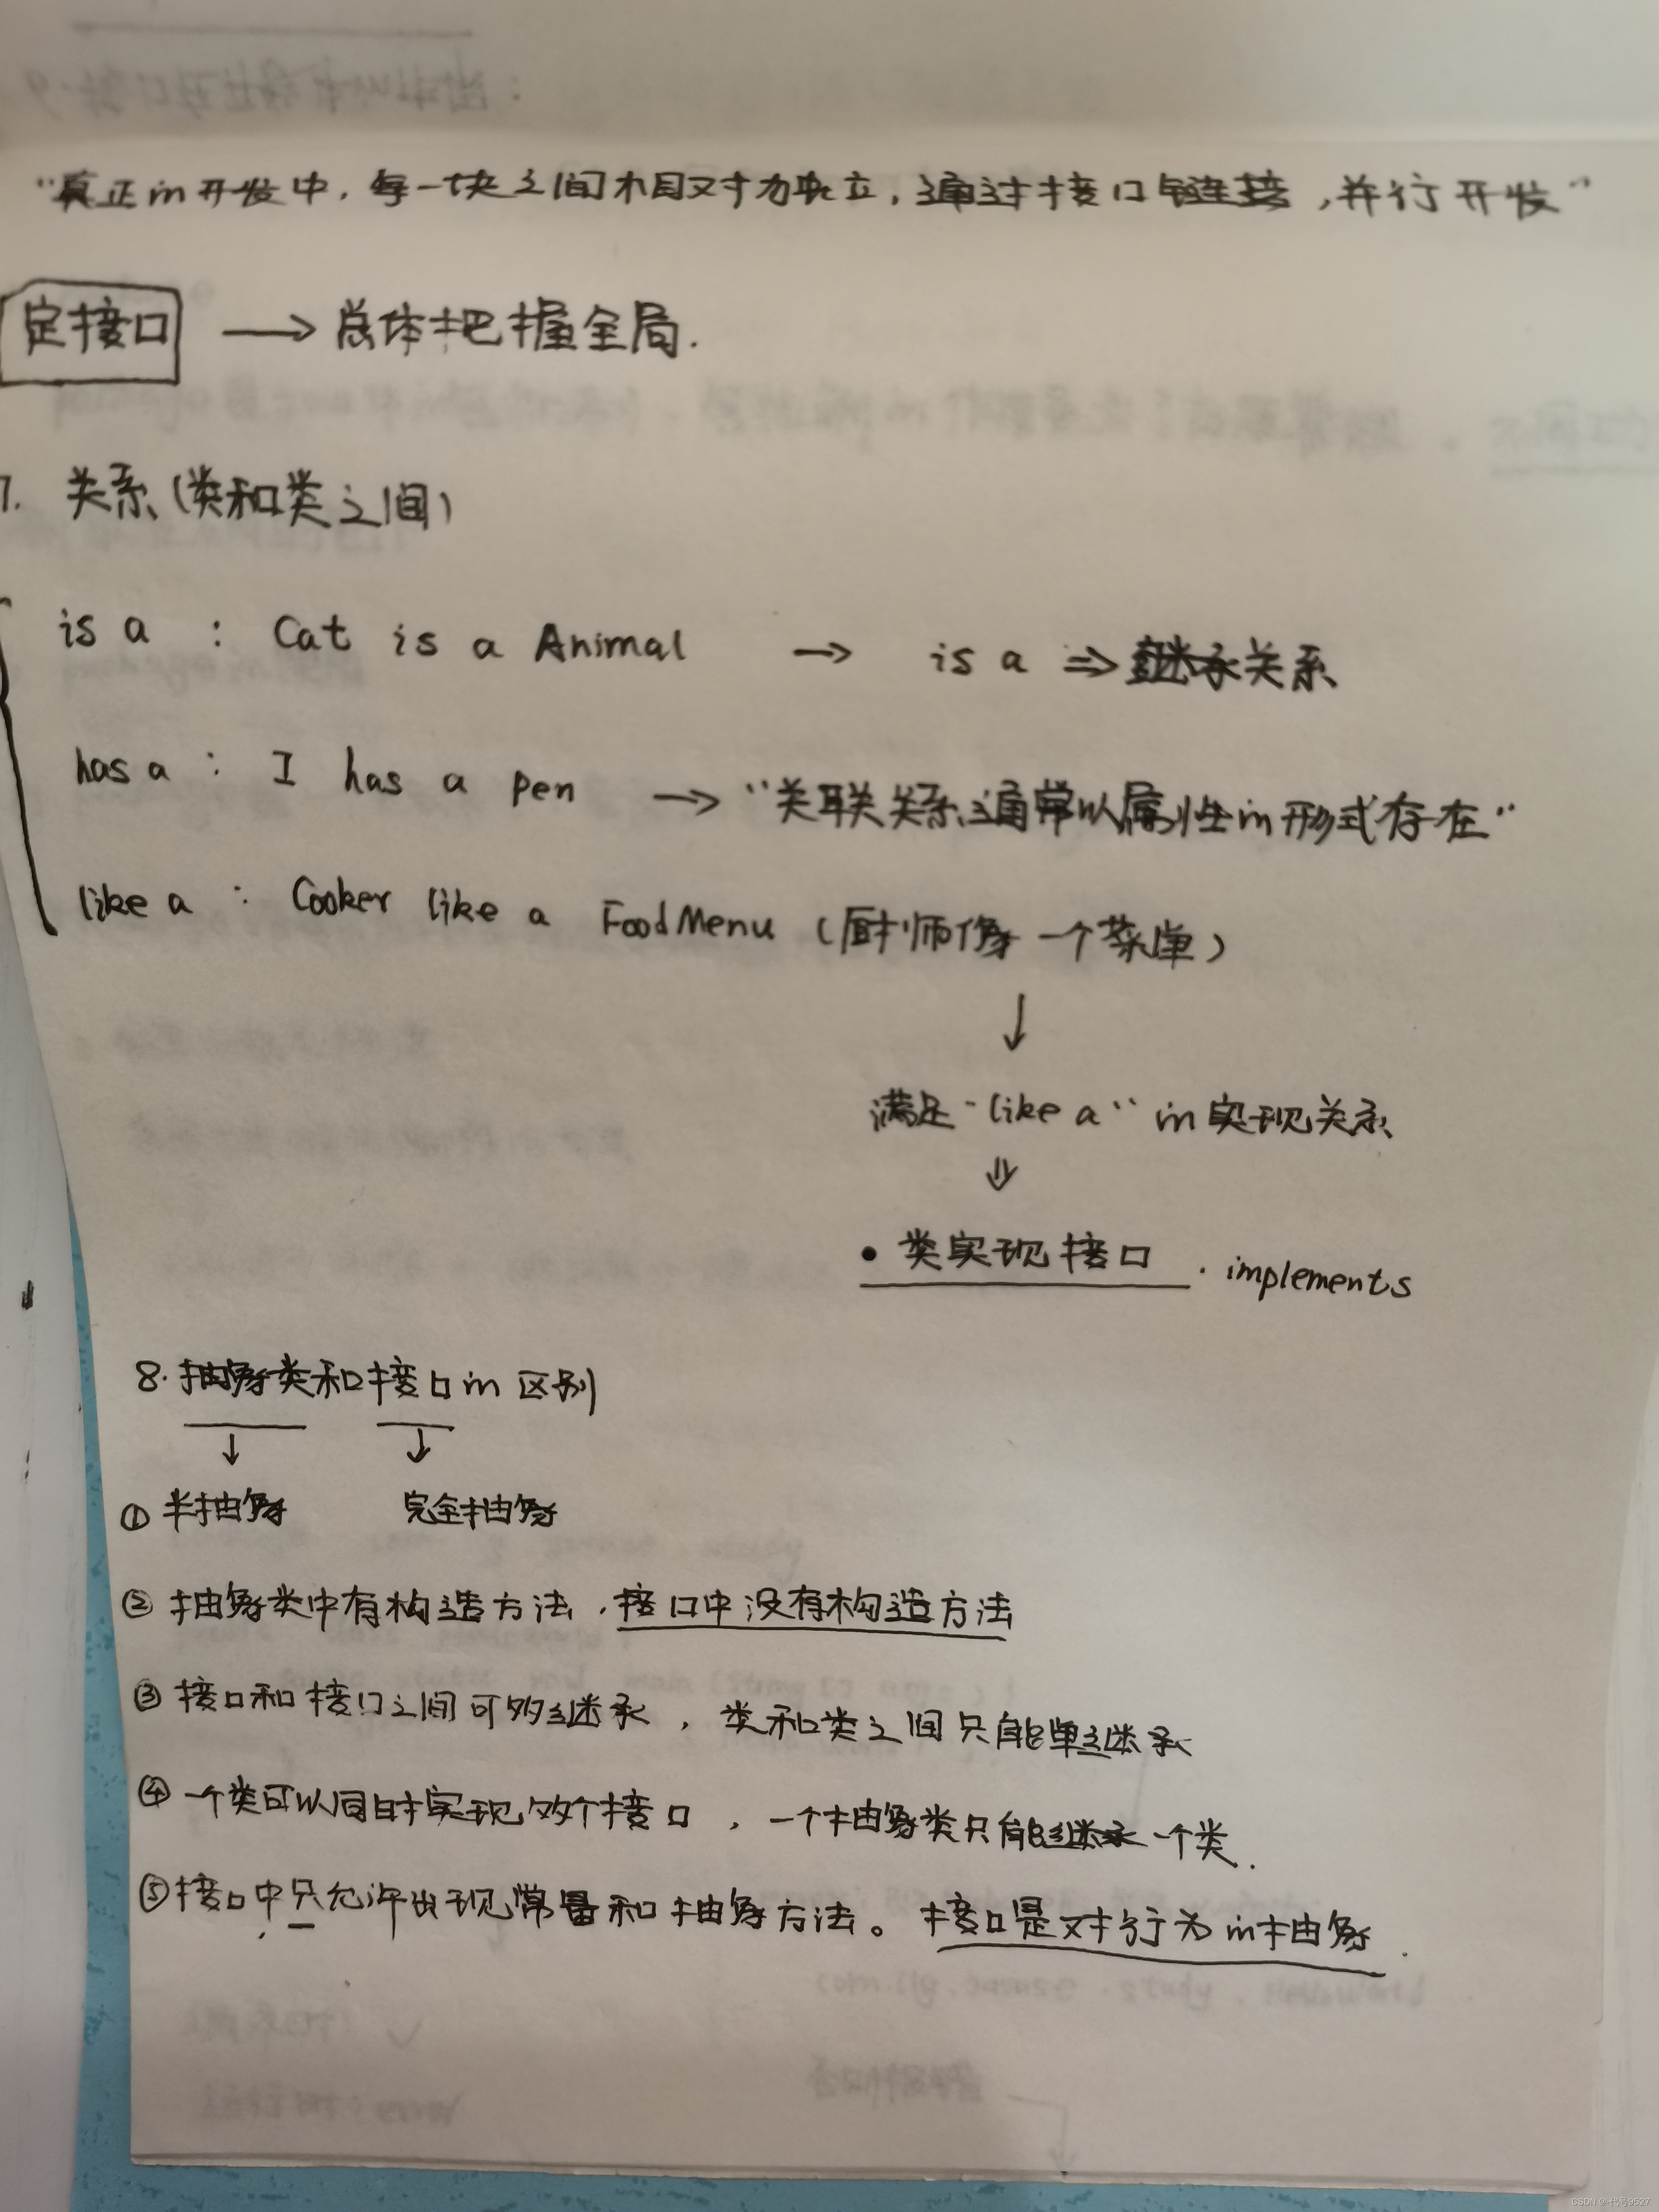 “真正in开发中，每一块之间相对独立，通过接口链接，并行开发”
定接口 → 总体把握全局.
7. 关系(类和类之间)
is a : Cat is a Animal → is a ⇒ 继承关系
has a : I has a pen → “关联关系通常以属性in形式存在”
like a : Cooker like a FoodMenu (厨师像一个菜单)
↓
满足“like a”in实现关系
⇓
• 类实现接口 . implements
8. 抽象类和接口in区别
↓ ↓
① 半抽象 完全抽象
② 抽象类中有构造方法，接口中没有构造方法
③ 接口和接口之间可多继承，类和类之间只能单继承
④ 一个类可以同时实现多个接口，一个抽象类只能继承一个类.
⑤ 接口中只允许出现常量和抽象方法。接口是对行为in抽象.
CSDN @代号9527